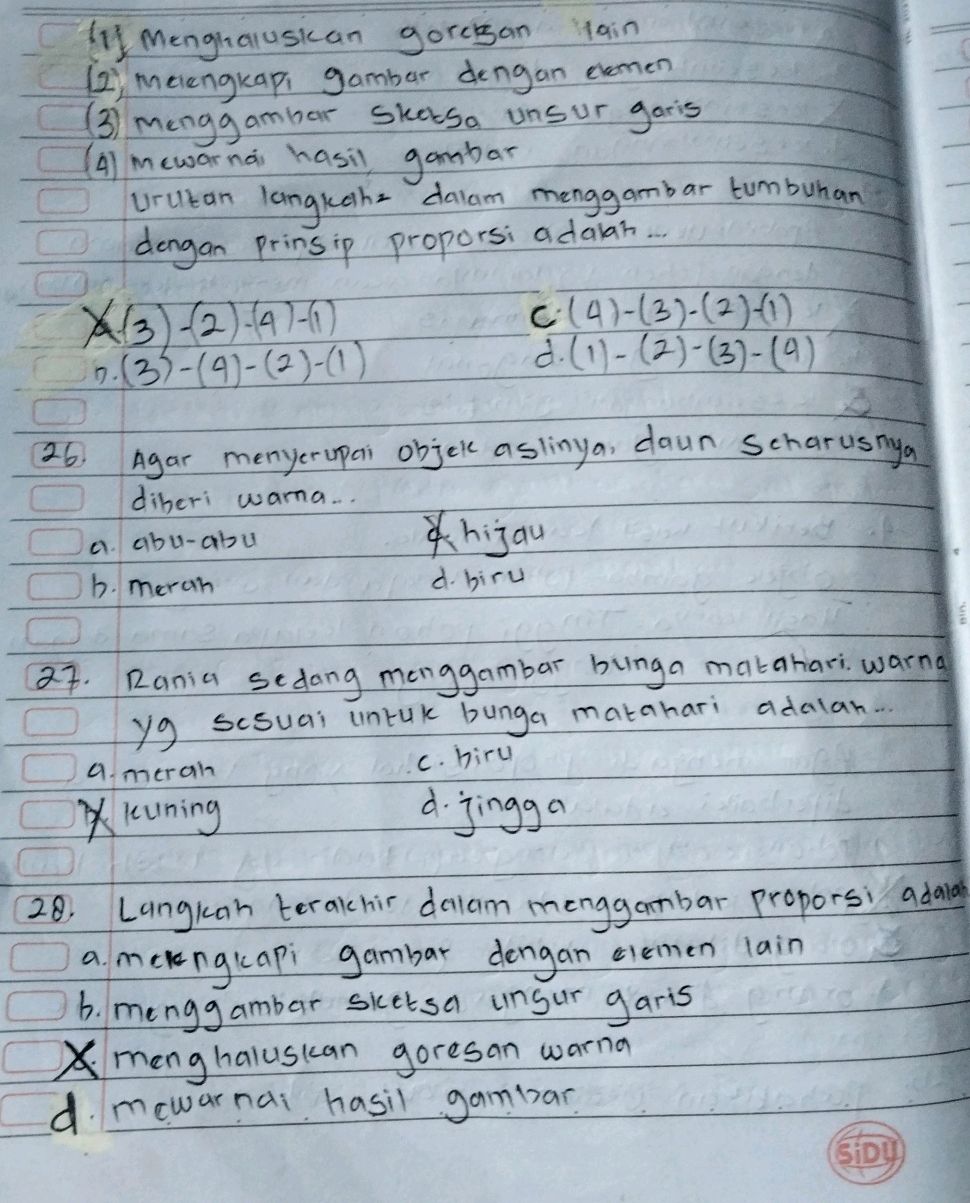 (1) Menghaluskan goresan lain
(2) melengkapi gambar dengan elemen
(3) menggambar sketsa unsur garis
(4) mewarnai hasil gambar
Urutan langkah2 dalam menggambar tumbuhan
dengan prinsip proporsi adalah...
a. (3)-(2)-(4)-(1) c. (4)-(3)-(2)-(1)
b. (3)-(4)-(2)-(1) d. (1)-(2)-(3)-(4)
26. Agar menyerupai objek aslinya, daun seharusnya
diberi warna...
a. abu-abu c. hijau
b. merah d. biru
27. Rania sedang menggambar bunga matahari. warna
yg sesuai untuk bunga matahari adalah...
a. merah c. biru
b. kuning d. jingga
28. Langkah terakhir dalam menggambar proporsi adalah
a. melengkapi gambar dengan elemen lain
b. menggambar sketsa unsur garis
c. menghaluskan goresan warna
d. mewarnai hasil gambar
SiDU